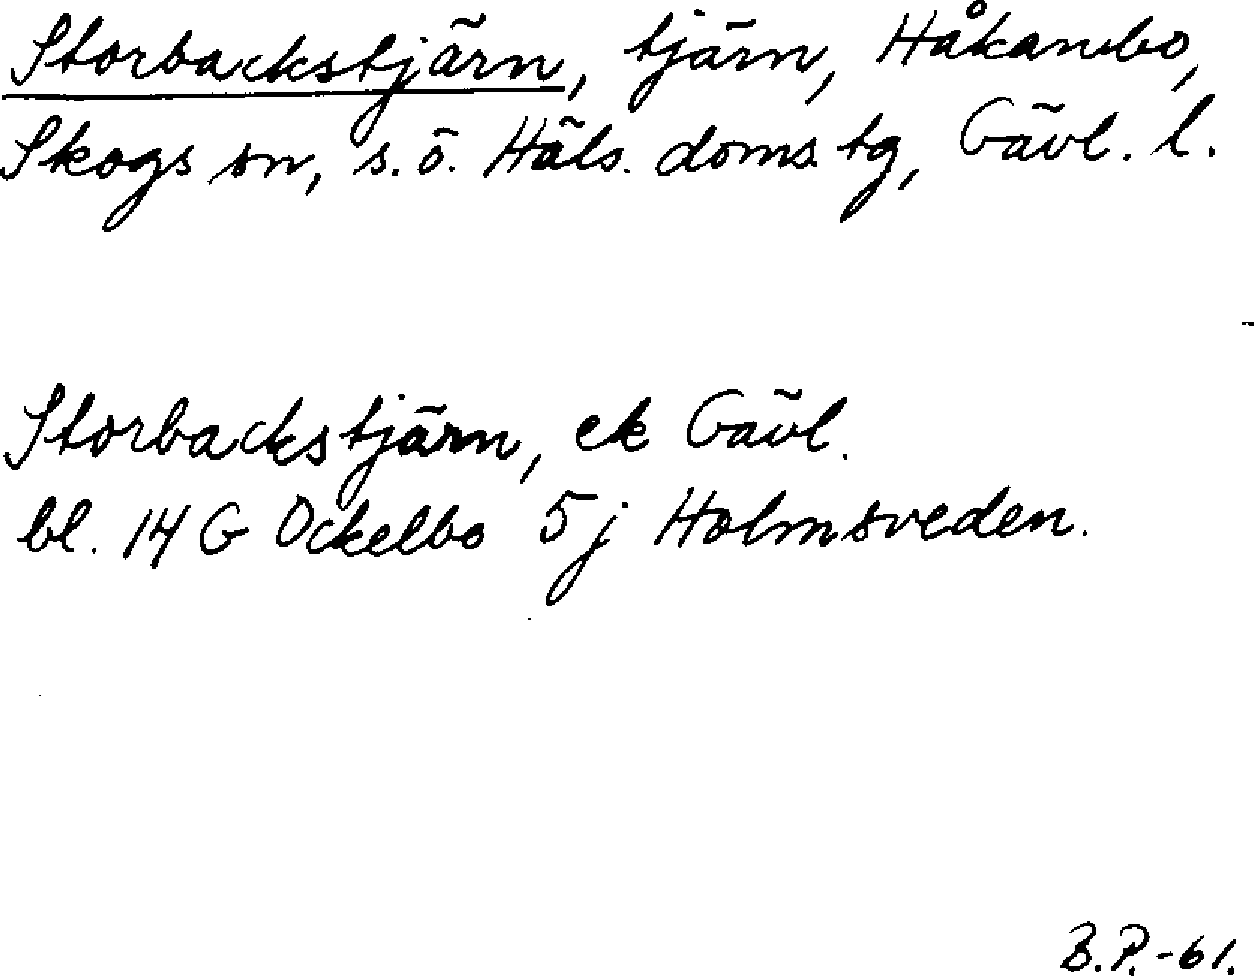 Storbackstjärn, tjärn, Håkanbo,
Skogs sn, s.ö. Häls. doms. tg, Gävl. l.
Storbackstjärn, ek Gävl.
bl. 14 G Ockelbo 5 j Holmsveden.
B.P.-61.